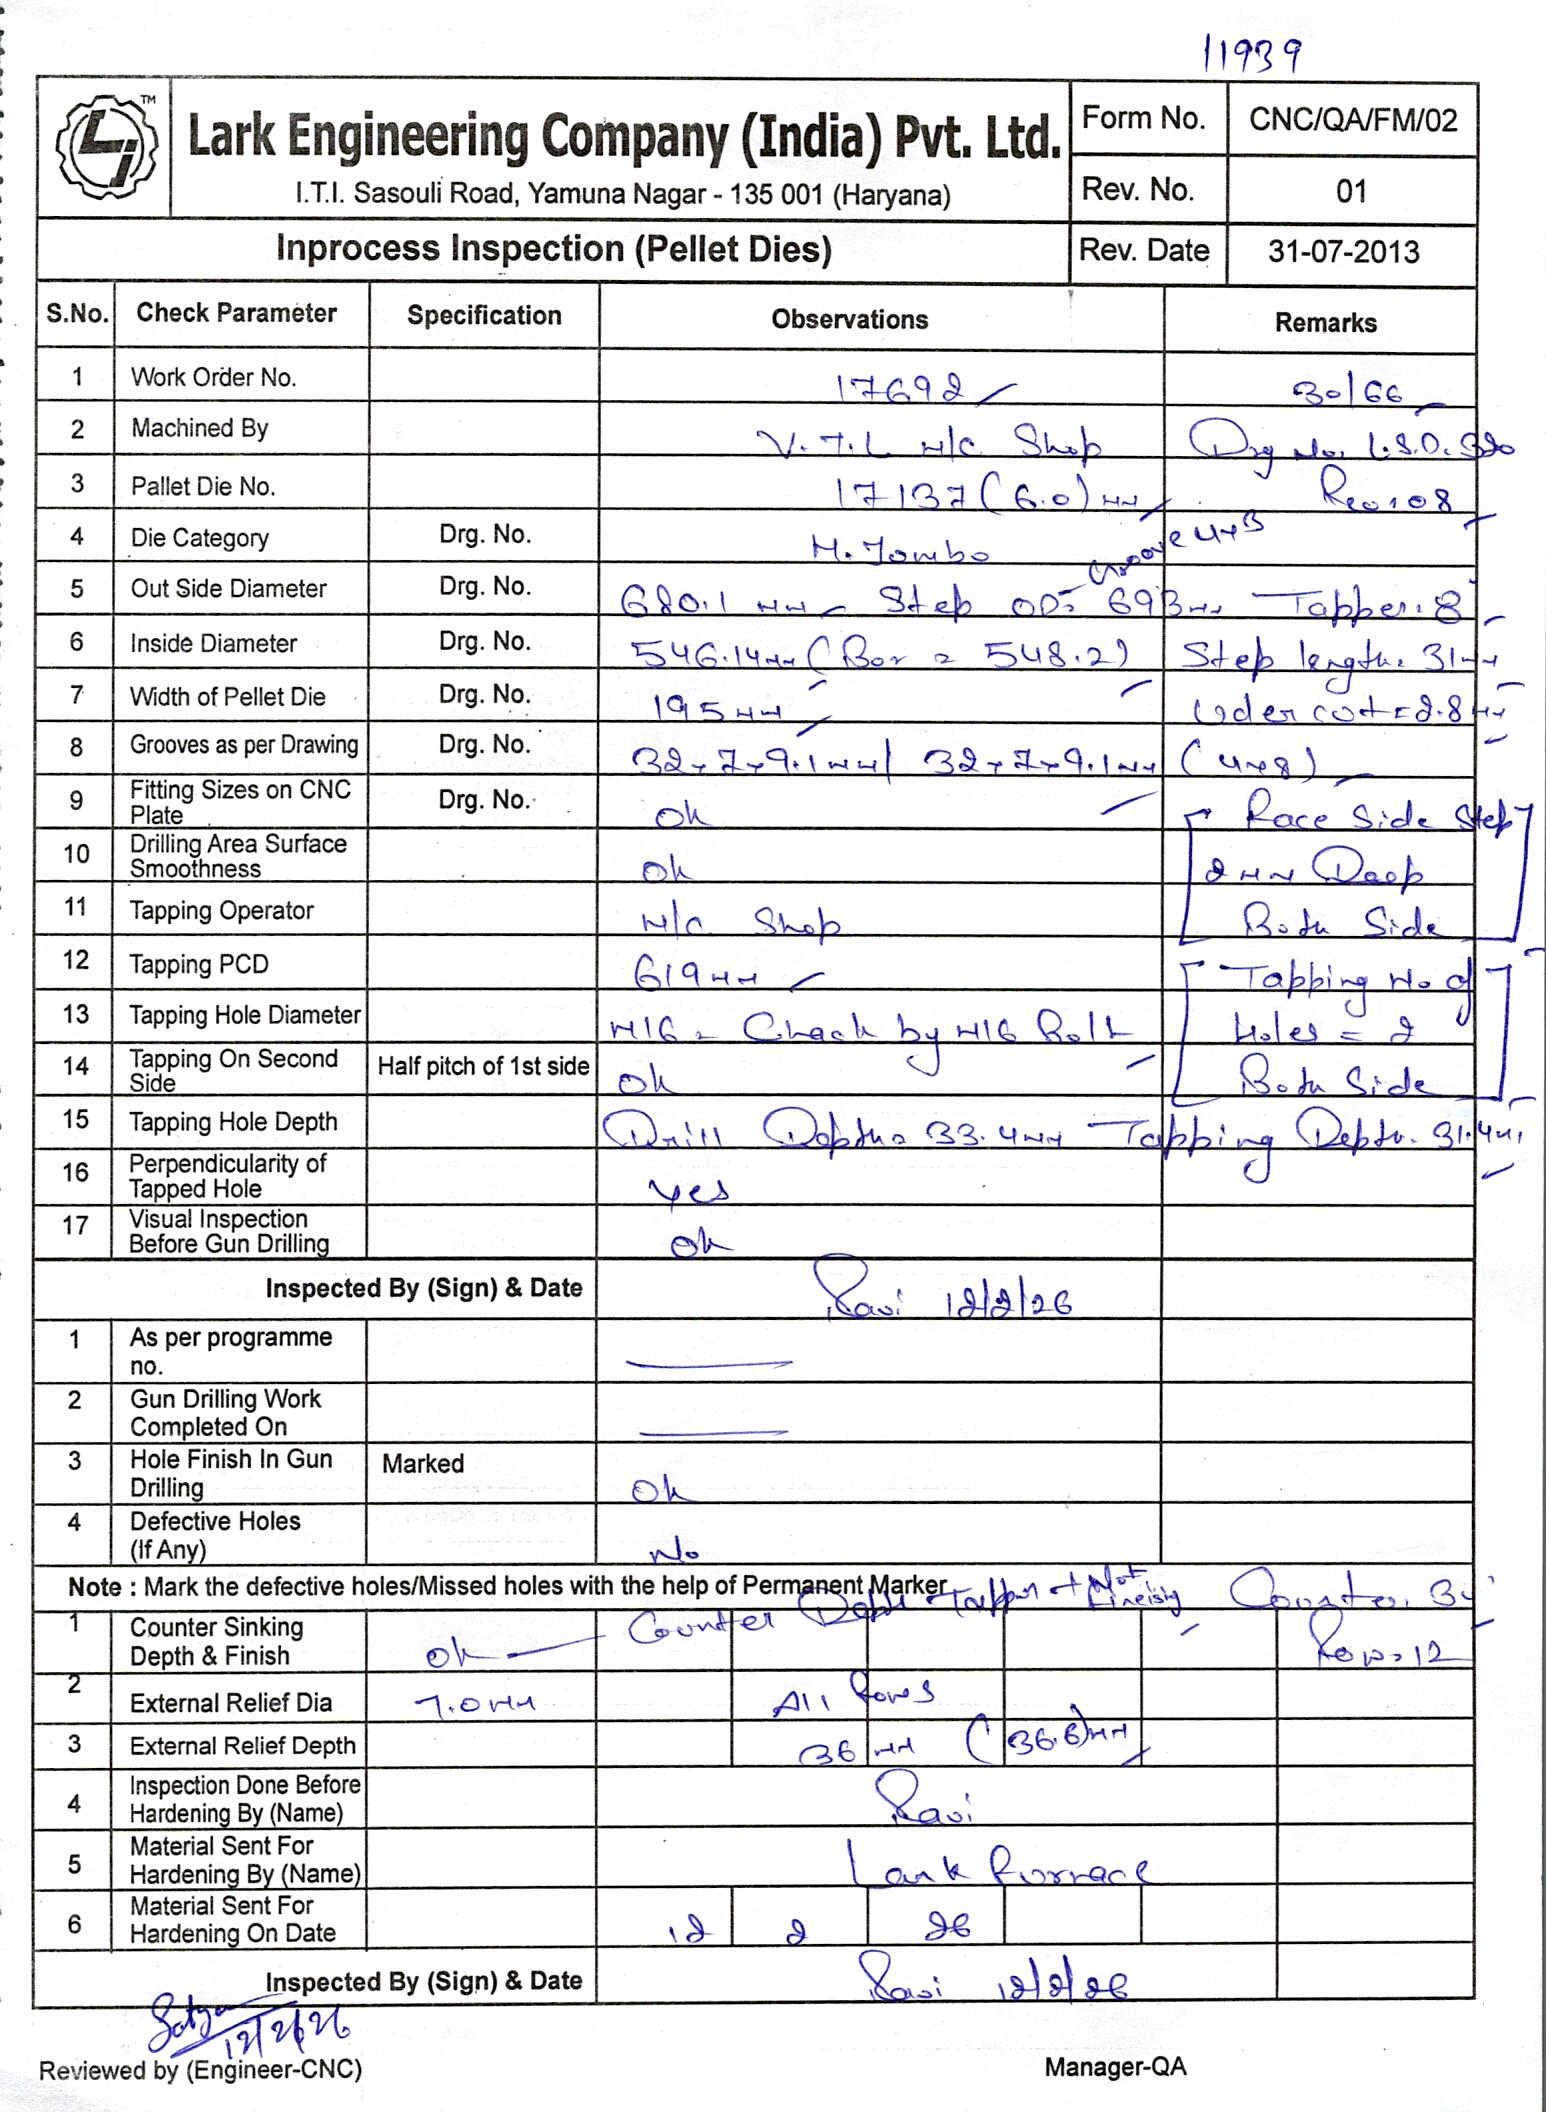 11939
TM
Lark Engineering Company (India) Pvt. Ltd.
I.T.I. Sasouli Road, Yamuna Nagar - 135 001 (Haryana)
Form No. CNC/QA/FM/02
Rev. No. 01
Inprocess Inspection (Pellet Dies) Rev. Date 31-07-2013
S.No. Check Parameter Specification Observations Remarks
1 Work Order No. 17692 30/66
2 Machined By V.T.L M/C Shop Drg No. L.S.D. 320
3 Pallet Die No. 17137 (6.0) mm Rev. 08
4 Die Category Drg. No. M. Jombo Groove 4x3
5 Out Side Diameter Drg. No. 680.1 mm Step OD= 693mm Tapper. 8
6 Inside Diameter Drg. No. 546.14mm (Bor = 548.2) Step length. 31mm
7 Width of Pellet Die Drg. No. 195mm Uder cot = 2.8mm
8 Grooves as per Drawing Drg. No. 32x7x9.1mm / 32x7x9.1mm (4x8)
9 Fitting Sizes on CNC Plate Drg. No. Ok Race Side Step
10 Drilling Area Surface Smoothness Ok 2mm Deep
11 Tapping Operator M/C Shop Both Side
12 Tapping PCD 619mm Tapping No of
13 Tapping Hole Diameter M16 - Check by M16 Bolt Holes = 2
14 Tapping On Second Side Half pitch of 1st side Ok Both Side
15 Tapping Hole Depth Drill Depth= 33.4mm Tapping Depth. 31.4mm
16 Perpendicularity of Tapped Hole Yes
17 Visual Inspection Before Gun Drilling Ok
Inspected By (Sign) & Date Ravi 12/2/26
1 As per programme no.
2 Gun Drilling Work Completed On
3 Hole Finish In Gun Drilling Marked Ok
4 Defective Holes (If Any) No
Note : Mark the defective holes/Missed holes with the help of Permanent Marker
1 Counter Sinking Depth & Finish Ok Counter Depth Tapper + Not Counter.
Row. 12
2 External Relief Dia 7.0mm All Rows
3 External Relief Depth 36mm (36.6)mm
4 Inspection Done Before Hardening By (Name) Ravi
5 Material Sent For Hardening By (Name) Lark Furnace
6 Material Sent For Hardening On Date 12 2 26
Inspected By (Sign) & Date Ravi 12/2/26
Satya
12/2/26
Reviewed by (Engineer-CNC) Manager-QA